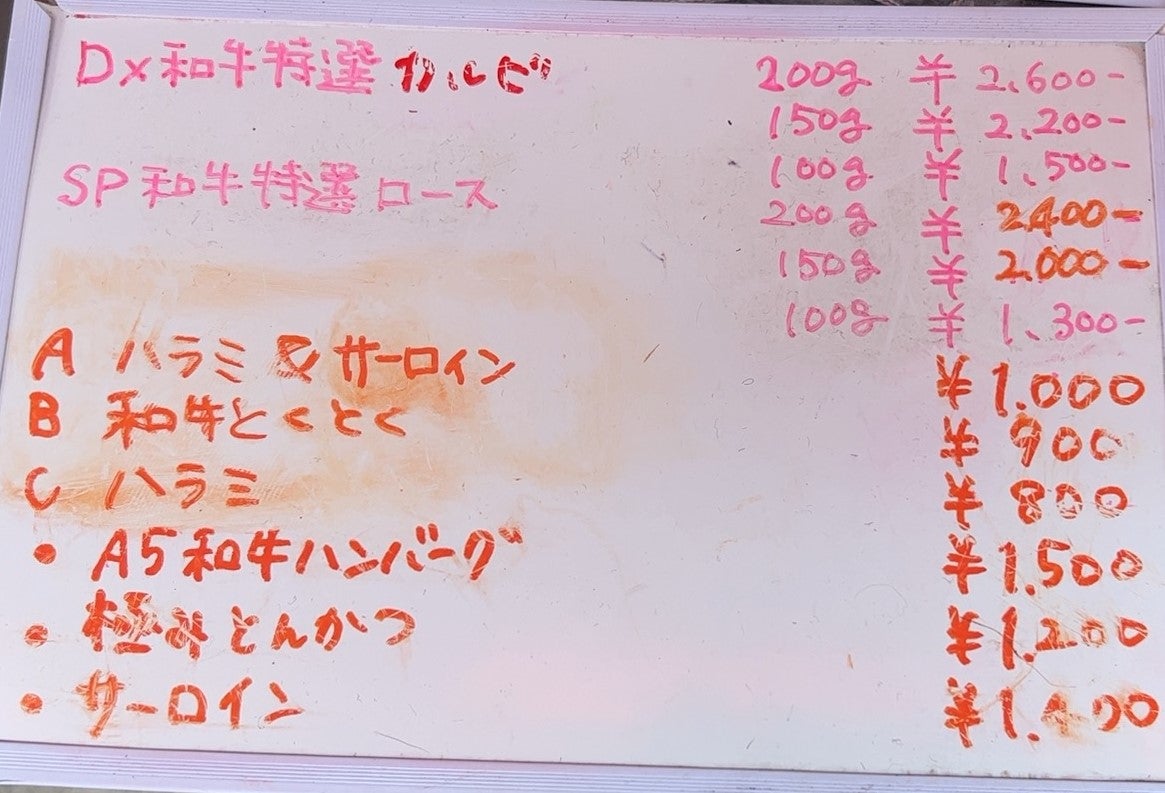 Dx和牛特選カルビ 200g ¥2.600-
150g ¥2.200-
100g ¥1.500-
SP和牛特選ロース 200g ¥2400-
150g ¥2.000-
100g ¥1.300-
A ハラミ&サーロイン ¥1.000
B 和牛とくとく ¥900
C ハラミ ¥800
・A5和牛ハンバーグ ¥1.500
・極みとんかつ ¥1.200
・サーロイン ¥1.400